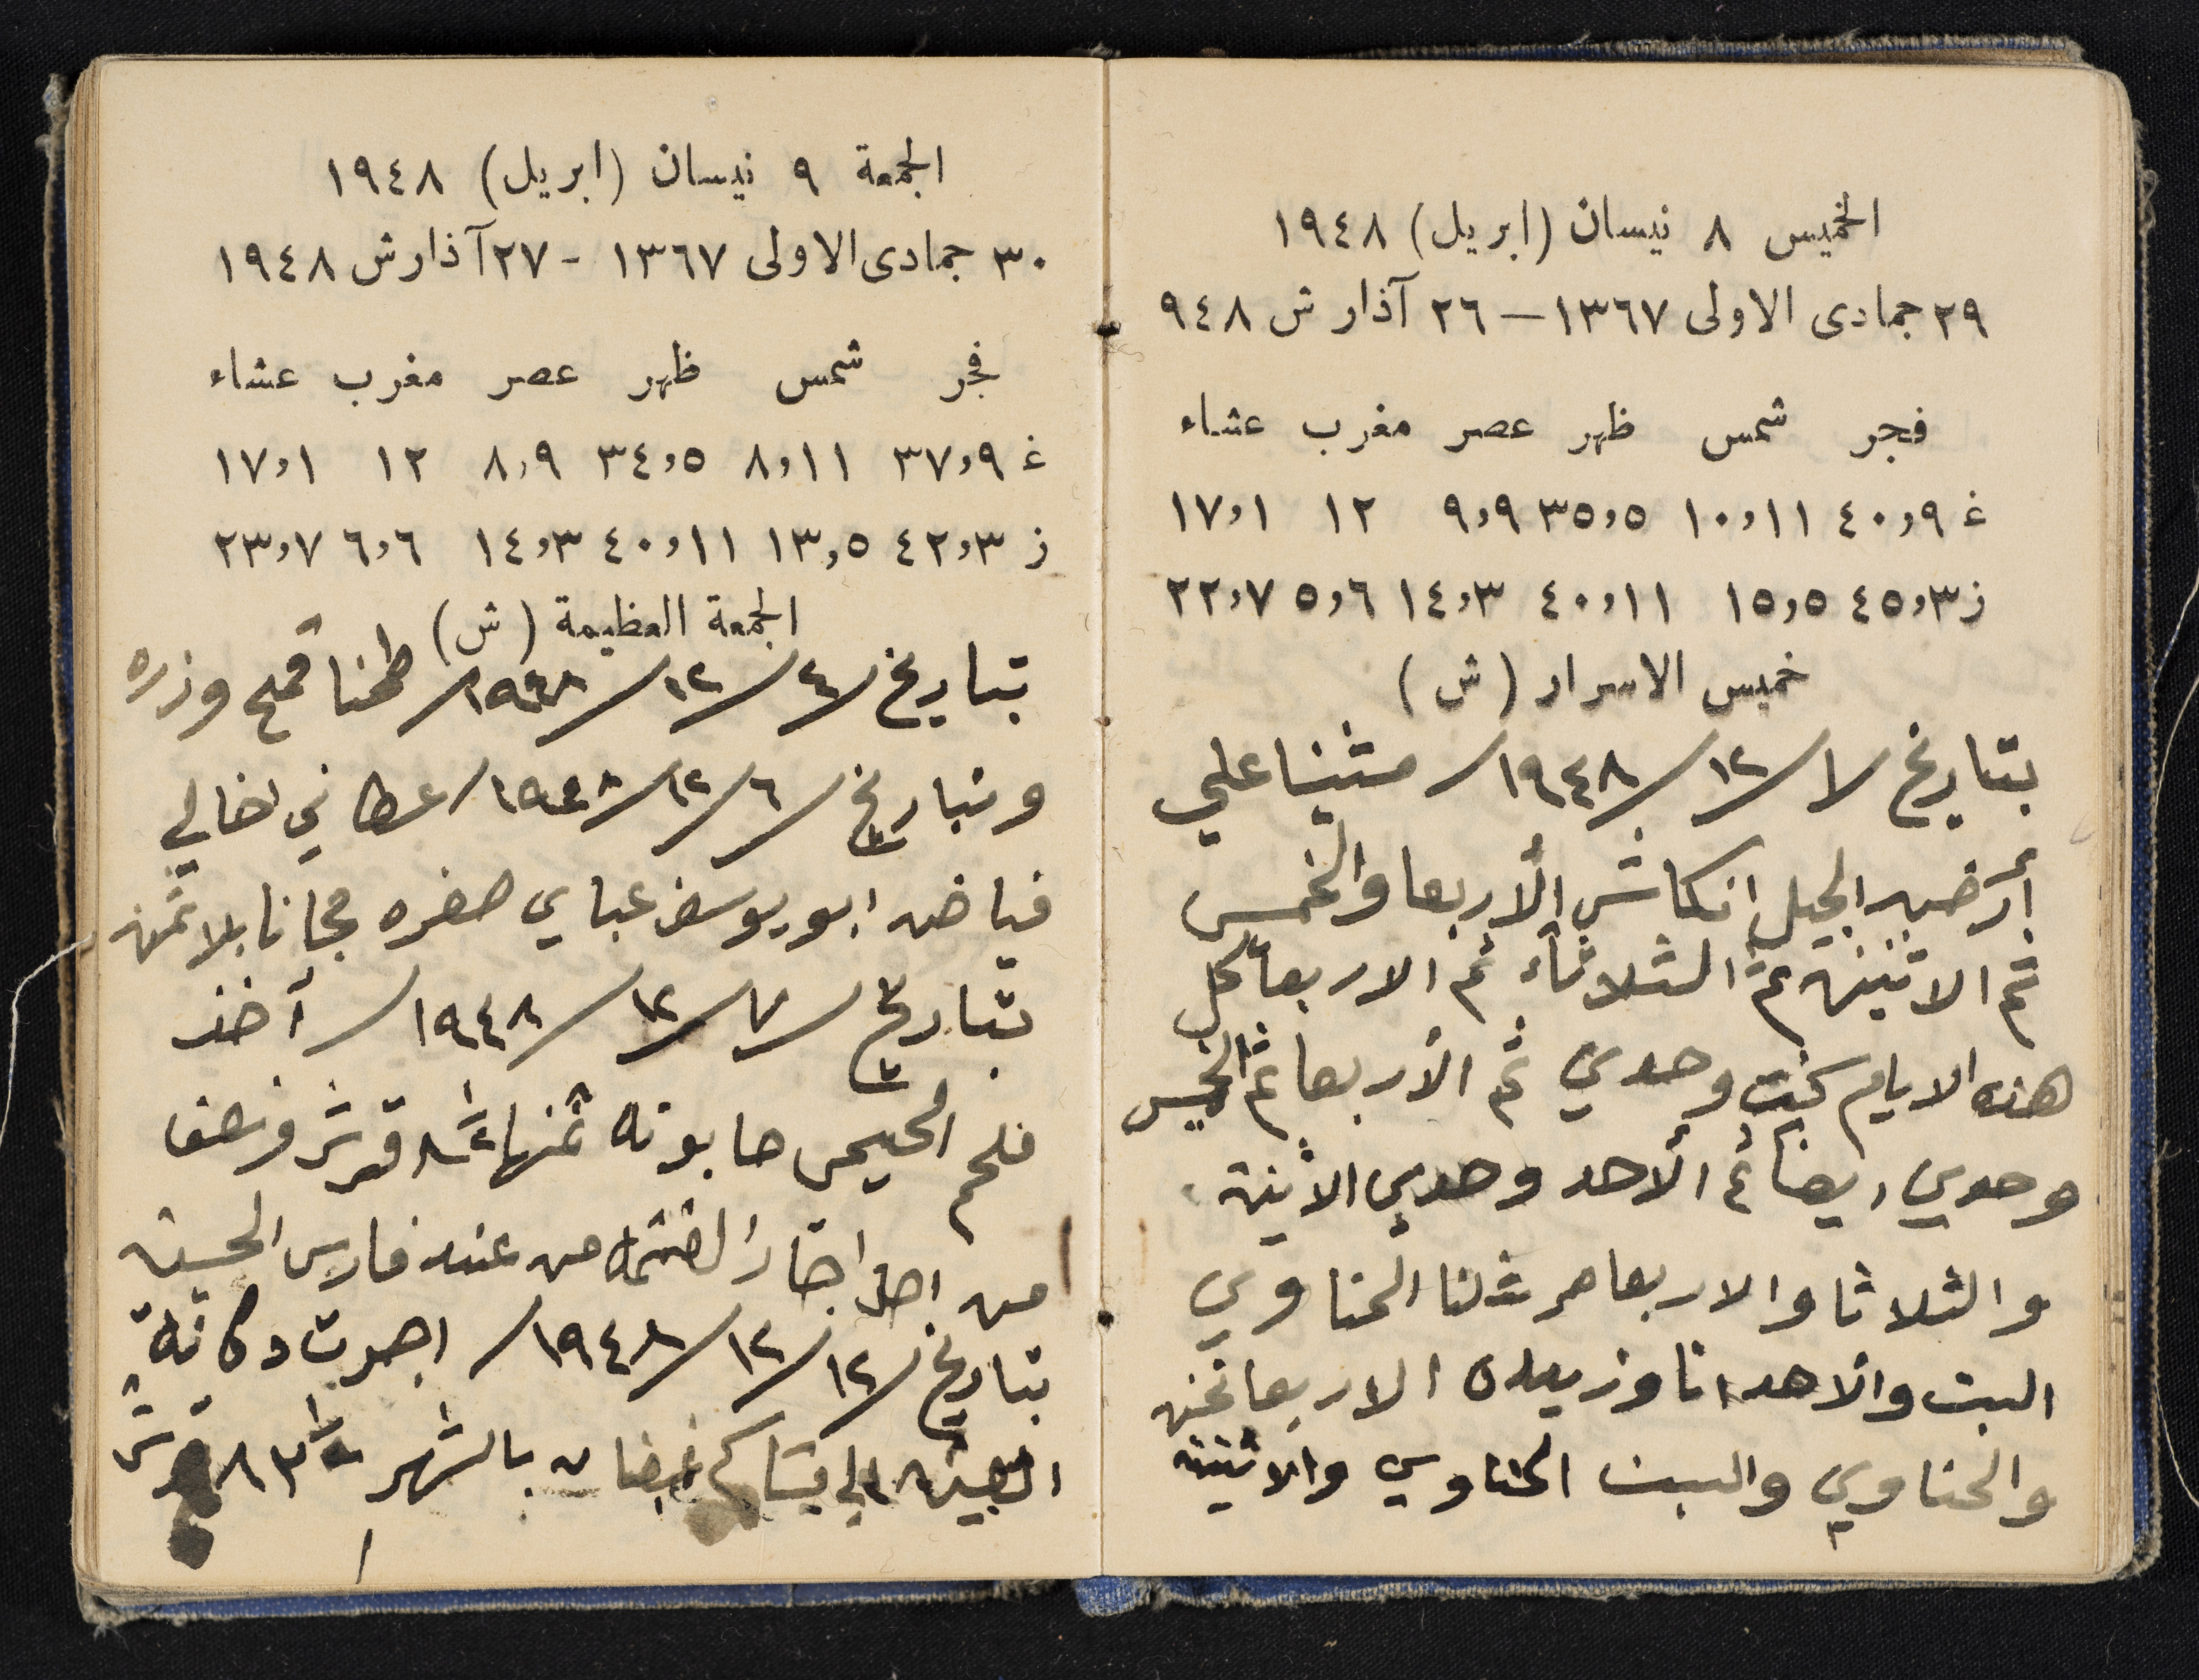 الخميس ٨ نيسان (ابريل) ١٩٤٨
٢٩ جمادى الاولى ١٣٦٧ — ٢٦ آذار ش ٩٤٨
فجر شمس ظهر عصر مغرب عشاء
غ ٤٠,٩ ١٠,١١ ٣٥,٥ ٩,٩ ١٢ ١٧,١
ز ٤٥,٣ ١٥,٥ ٤٠,١١ ١٤,٣ ٥,٦ ٢٢,٧
خميس الاسرار (ش)
بتاريخ ١/١٢/١٩٤٨/ مشينا علي
أرض الجبل انكاش الأربعا والخمس
ثم الاثنين ثم الثلاثاء ثم الاربعا كل
هذه الايام كنت وحدي ثم الأربعا ثم الخميس
وحدي ايضا ثم الأحد وحدي الاثنين
والثلاثا والاربعا حرث لنا الحناوي
السبت والأحد انا وزبيده الاربعا نحن
والحناوي والسبت الحناوي والاثنين
الجمعة ٩ نيسان (ابريل) ١٩٤٨
٣٠ جمادى الاولى ١٣٦٧ - ٢٧ آذار ش ١٩٤٨
فجر شمس ظهر عصر مغرب عشاء
غ ٣٧,٩ ٨,١١ ٣٤,٥ ٨,٩ ١٢ ١٧,١
ز ٤٢,٣ ١٣,٥ ٤٠,١١ ١٤,٣ ٦,٦ ٢٣,٧
الجمعة العظيمة (ش)
بتاريخ ٤/١٢/١٩٤٨/ طحنا قمح وذره
وبتاريخ ٦/١٢/١٩٤٨/ عطاني خالي
فياض ابو يوسف عباي صفره مجانا بلا ثمن
بتاريخ ٧/١٢/١٩٤٨/ أخذ
ملحم صابونه ثمنها قرش ونصف
من اجل من عند فارس الحسين
بتاريخ ١٢/١٢/١٩٤٨/ اجرت دكانة
بالشهر قرش